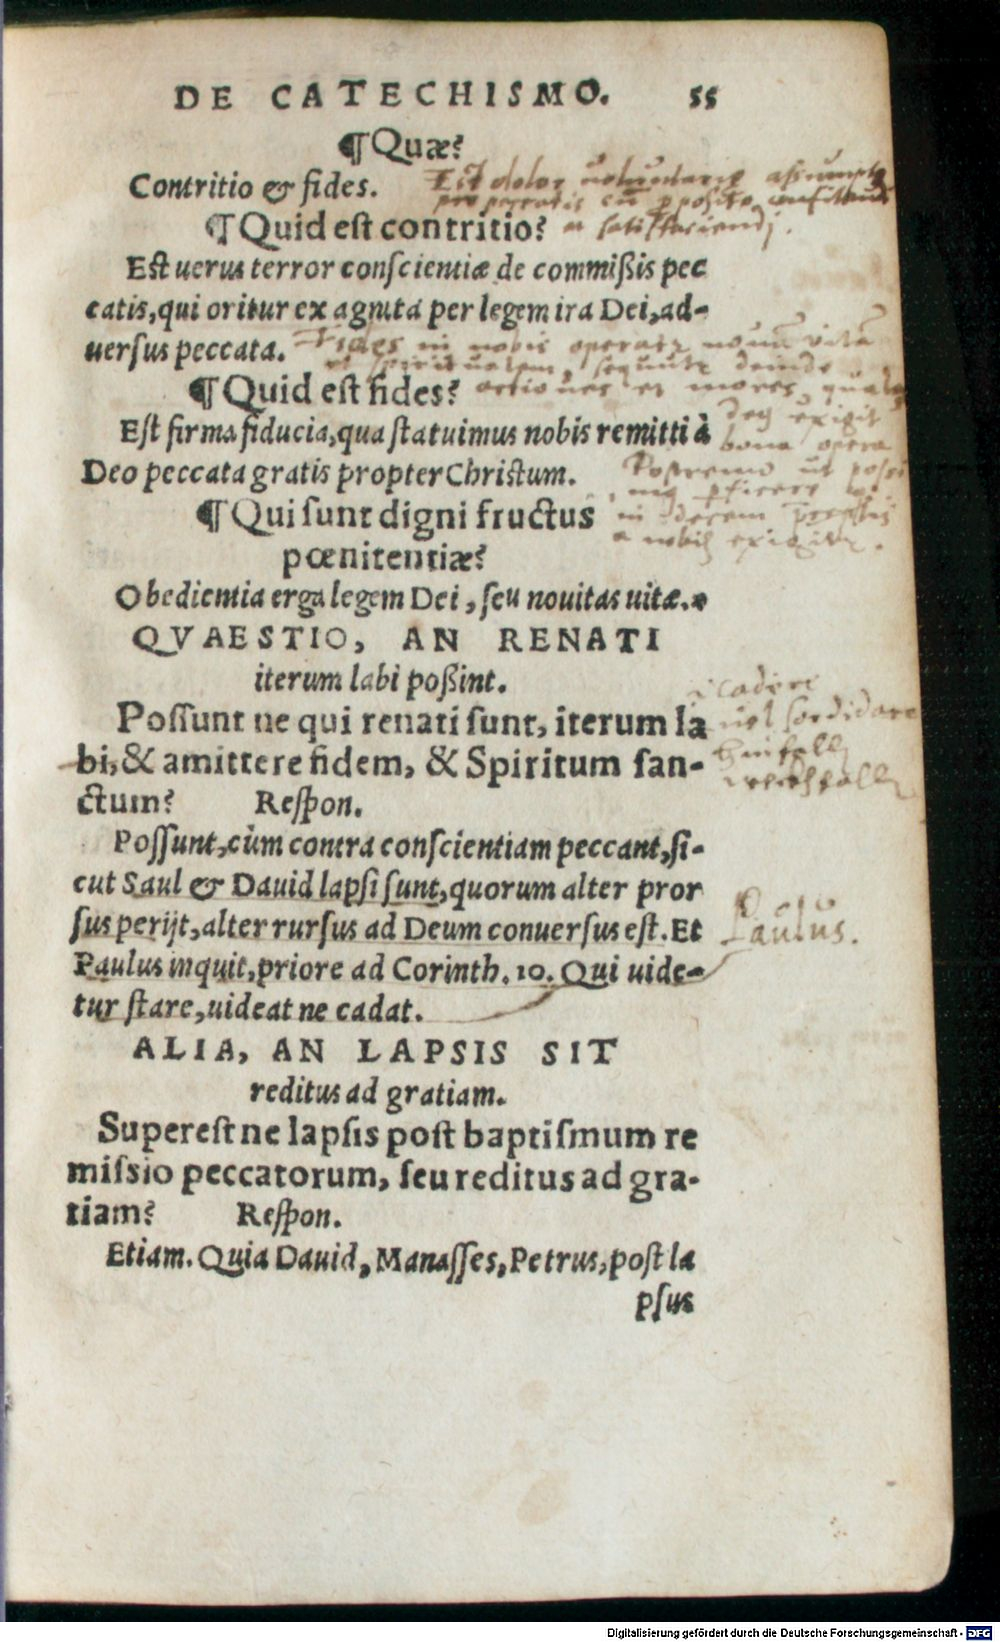 DE CATECHISMO. 55
¶Quæ?
Contritio & fides. Est dolor voluntarie assumpte
pro peccatis cū pposito confitendi
¶Quid est contritio? a satisfaciendj.
Est uerus terror conscientiæ de commißis pec
catis, qui oritur ex agnita per legem ira Dei, ad-
uersus peccata. Fides in nobis operatr nouā vitā
et spiritualem, sequūtr deinde
¶Quid est fides? actiones et mores, quales
deg exigit
Est firma fiducia, qua statuimus nobis remitti à
bona opera
Deo peccata gratis propter Christum.
Postremo ut
¶Qui sunt digni fructus
in
pœnitentiæ?
a nobis exigitr.
Obedientia erga legem Dei, seu nouitas uitæ.
QVAESTIO, AN RENATI
iterum labi poßint.
cadere
Possunt ne qui renati sunt, iterum la
uel sordidare
bi, & amittere fidem, & Spiritum san-
ctum? Respon.
Possunt, cùm contra conscientiam peccant, si-
cut Saul & Dauid lapsi sunt, quorum alter pror
sus perijt, alter rursus ad Deum conuersus est. Et
Paulus.
Paulus inquit, priore ad Corinth. 10. Qui uide-
tur stare, uideat ne cadat.
ALIA, AN LAPSIS SIT
reditus ad gratiam.
Superest ne lapsis post baptismum re
missio peccatorum, seu reditus ad gra-
tiam? Respon.
Etiam. Quia Dauid, Manasses, Petrus, post la
psus
Digitalisierung gefördert durch die Deutsche Forschungsgemeinschaft - DFG